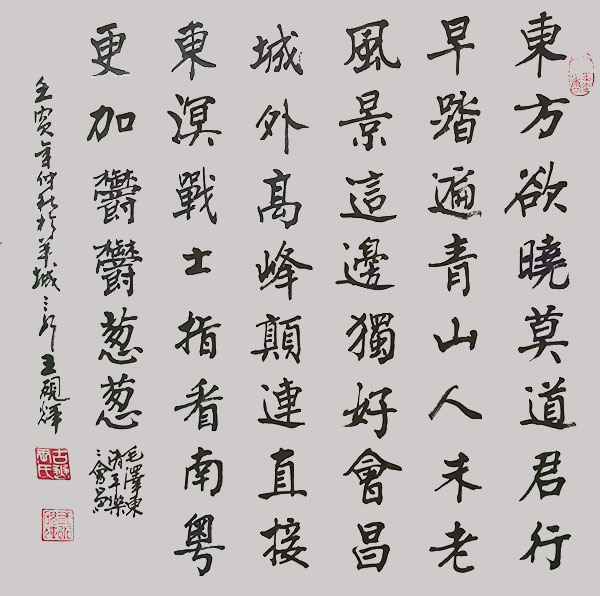 東方欲曉莫道君行
早踏遍青山人未老
風景這邊獨好會昌
城外高峰顛連直接
東溟戰士指看南粵
更加鬱鬱葱葱
毛澤東
清平樂
會昌
壬寅年仲秋於羊城 王硯輝